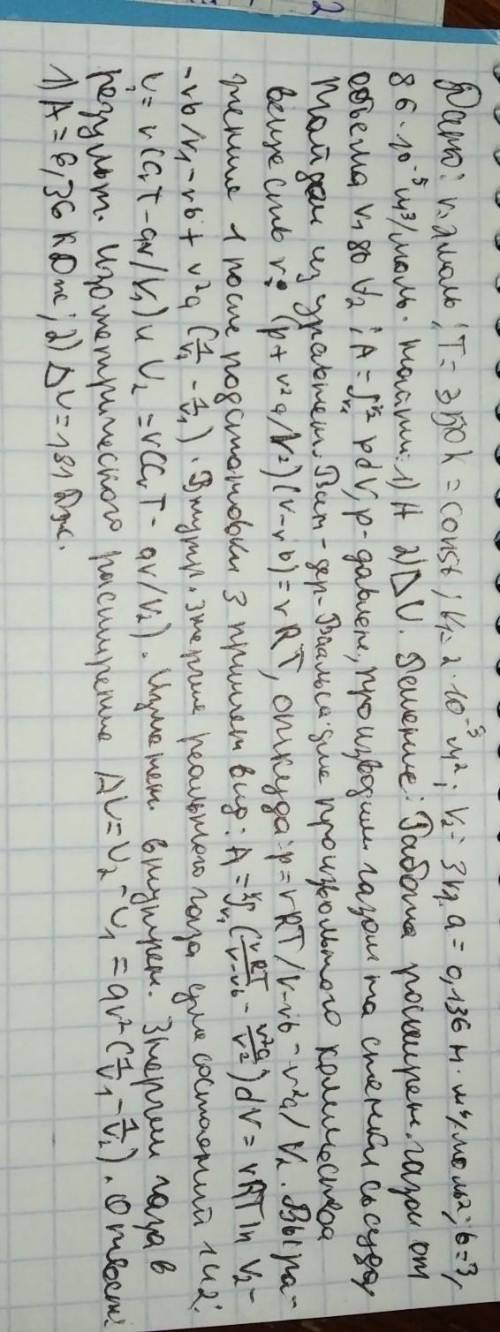 Дано: ν=2моль; T=350k=const; V₁=2·10⁻³м²; V₂=3V₁ a=0,136 Н·м⁴/моль²; b=3,
86·10⁻⁵м³/моль. Найти: 1) A 2) ΔU. Решение: Работа расширен. газа от
объема V₁ до V₂; A=∫ᵥ₁ⱽ² pdV, p-давлен, производим. газом на стенки сосуда,
Найдем из уравнен. Ван-дер-Ваальса для произвольного количества
веществ ν: (p+ν²a/V²)(V-νb)=νRT, откуда: p=νRT/V-νb-ν²a/V₂. Выра-
жение 1 после подстановки 3 примет вид: A=∫ᵥ₁ⱽ²(νRT/V-νb - ν²a/V²)dV=νRT ln V₂-
-νb/V₁-νb+ν²a(1/V₂-1/V₁). Внутр. энергия реального газа для состояний 1 и 2:
U₁=ν(CᵥT-aν/V₁) и U₂=ν(CᵥT-aν/V₂). Изменен. внутрен. энергии газа в
результ. изометрического расширения ΔU=U₂-U₁=aν²(1/V₁-1/V₂). Ответ:
1) A=6,36 кДж; 2) ΔU=181 Дж.
2